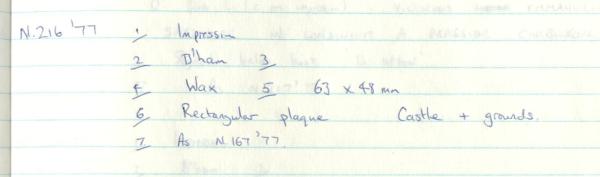 N.216 '77 1 Impression
2 B'ham 3
4 Wax 5 63 x 48 mm
6 Rectangular plaque Castle + grounds.
7 As N.167 '77.